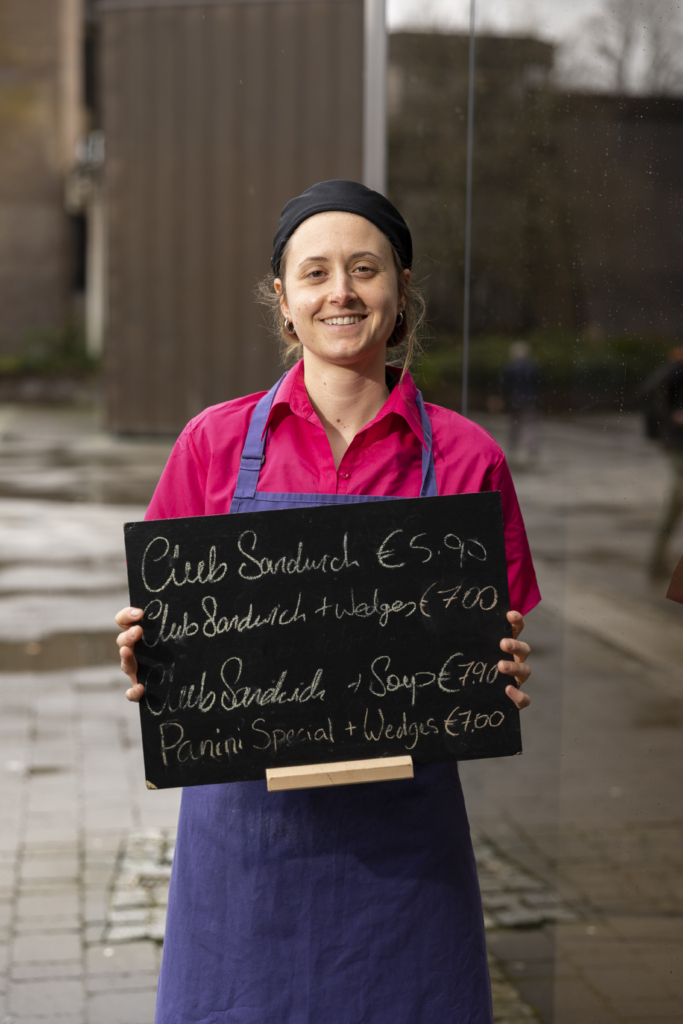 Club Sandwich €5.90
Club Sandwich + Wedges €7.00
Club Sandwich + Soup €7.90
Panini Special + Wedges €7.00